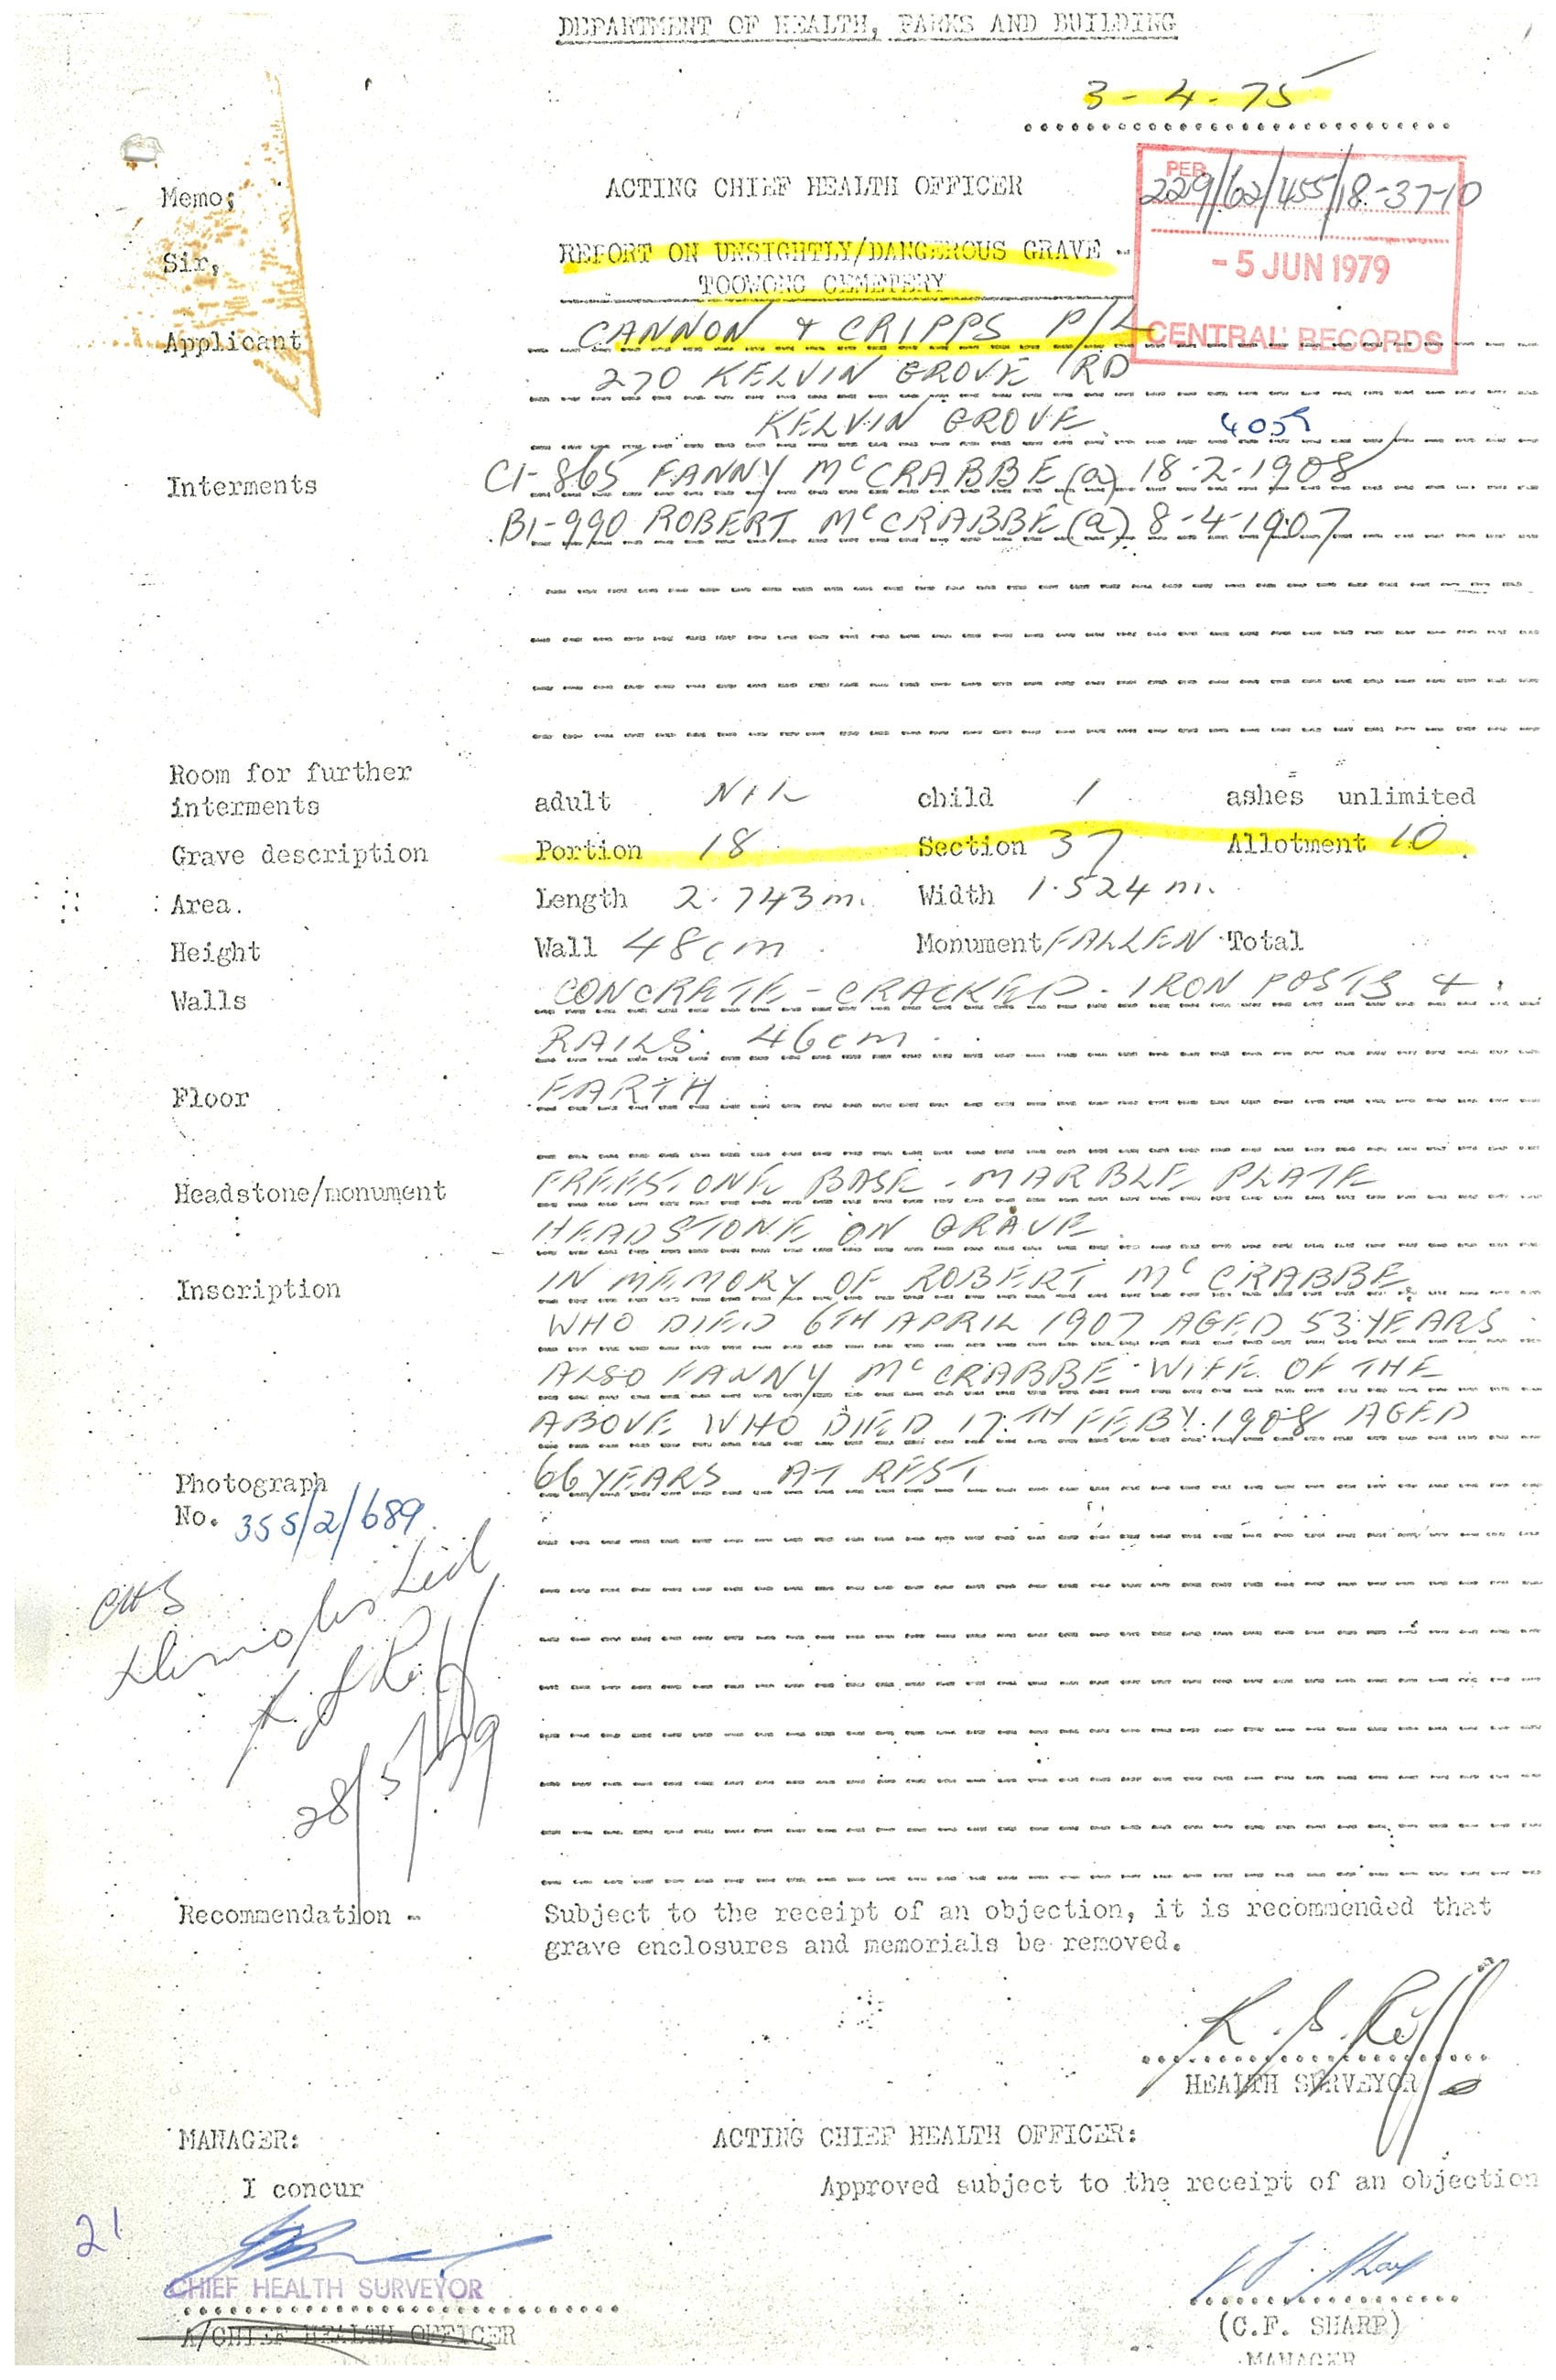 DEPARTMENT OF HEALTH, PARKS AND BUILDING
3-4-75
Memo;
ACTING CHIEF HEALTH OFFICER
PEB
229/62/455/18-37-10
Sir,
REPORT ON UNSIGHTLY/DANGEROUS GRAVE -
TOOWONG CEMETERY
- 5 JUN 1979
CENTRAL RECORDS
Applicant CANNON & CRIPPS P/L
270 KELVIN GROVE RD
KELVIN GROVE. 4059
Interments C1-865 FANNY McCRABBE (a) 18-2-1908
B1-990 ROBERT McCRABBE (a) 8-4-1907
Room for further
interments adult NIL child 1 ashes unlimited
Grave description Portion 18 Section 37 Allotment 10
Area. Length 2.743m. Width 1.524m.
Height Wall 48cm Monument FALLEN Total
Walls CONCRETE - CRACKED - IRON POSTS &
RAILS. 46cm
Floor EARTH
Headstone/monument FREESTONE BASE - MARBLE PLATE
HEADSTONE ON GRAVE.
Inscription IN MEMORY OF ROBERT McCRABBE
WHO DIED 6TH APRIL 1907 AGED 53 YEARS
ALSO FANNY McCRABBE WIFE OF THE
ABOVE WHO DIED 17TH FEBY. 1908 AGED
66 YEARS AT REST
Photograph
No. 355/2/689
CHS
Demolished
28/5/79
Recommendation - Subject to the receipt of an objection, it is recommended that
grave enclosures and memorials be removed.
HEALTH SURVEYOR
MANAGER: ACTING CHIEF HEALTH OFFICER:
I concur Approved subject to the receipt of an objection
21
CHIEF HEALTH SURVEYOR
A/CHIEF HEALTH OFFICER
(C.F. SHARP)
MANAGER